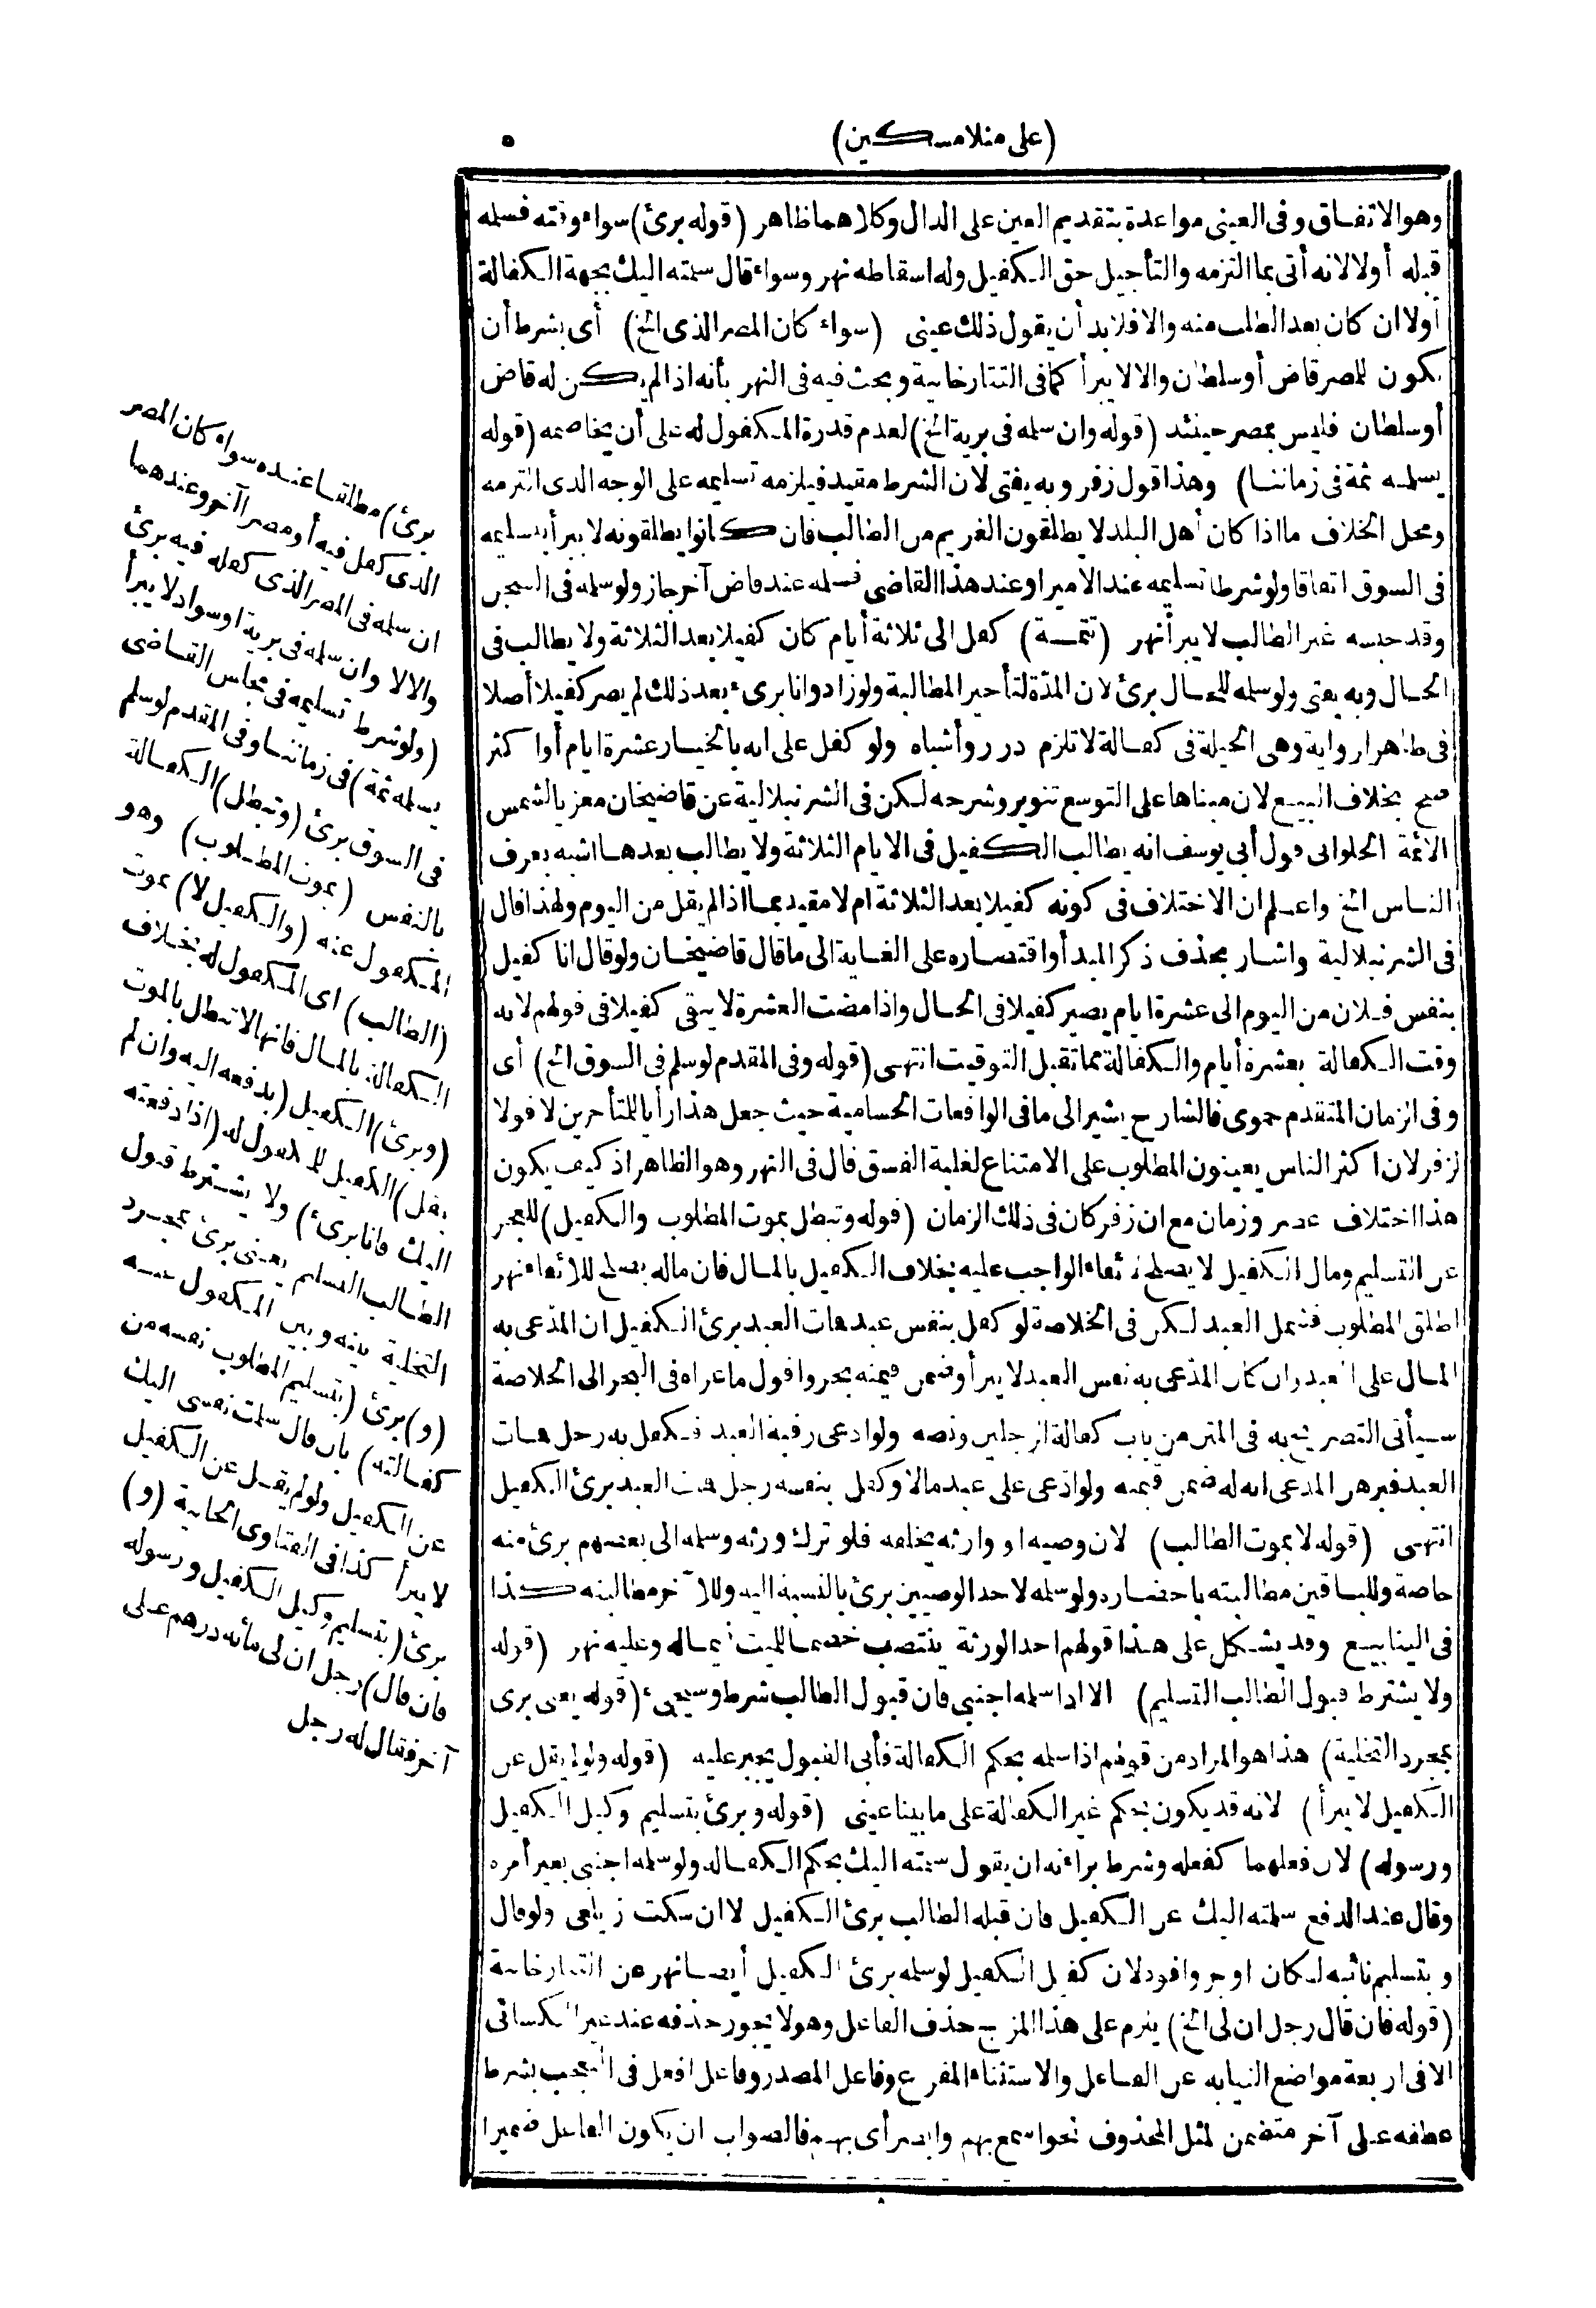 (على منلا مسكين) ٥
وهو الاتفاق وفى العينى مواعدة بتقديم العين على الدال وكلاهما ظاهر (قوله برئ) سواء وقته فسلمه
قبله أولا لانه أتى بما التزمه والتأجيل حق الكفيل وله اسقاطه نهر وسواء قال سلمته اليك بجهة الكفالة
أولا ان كان بعد الطلب منه والا فلابد أن يقول ذلك عينى (سواء كان المصر الذى الخ) أى بشرط أن
يكون للمصر قاض أو سلطان والا لا يبرأ كما فى التتارخانية وبحث فيه فى النهر بأنه اذا لم يكن له قاض
أو سلطان فليس بمصر حينئذ (قوله وان سلمه فى برية الخ) لعدم قدرة المكفول له على أن يخاصمه (قوله
يسلمه ثمة فى زماننا) وهذا قول زفر وبه يفتى لان الشرط مقيد فيلزمه تسليمه على الوجه الذى التزمه
ومحل الخلاف ما اذا كان أهل البلد لا يطلقون الغريم من الطالب فان كانوا يطلقونه لا يبرأ بتسليمه
فى السوق اتفاقا ولو شرط تسليمه عند الامير او عند هذا القاضى فسلمه عند قاض آخر جاز ولو سلمه فى السجن
وقد حبسه غير الطالب لا يبرأ نهر (تتمـة) كفل الى ثلاثة أيام كان كفيلا بعد الثلاثة ولا يطالب فى
الحال وبه يفتى ولو سلمه للحال برئ لان المدّة لتأخير المطالبة ولو زاد وانا برىء بعد ذلك لم يصر كفيلا أصلا
فى ظاهر الرواية وهى الحيلة فى كفالة لا تلزم درر وأشباه ولو كفل على انه بالخيار عشرة ايام أو اكثر
صح بخلاف البيع لان مبناها على التوسع تنوير وشرحه لكن فى الشرنبلالية عن قاضيخان معزيا لشمس
الائمة الحلوانى قول أبى يوسف انه يطالب الكفيل فى الايام الثلاثة ولا يطالب بعدها اشبه بعرف
الناس الخ واعلم ان الاختلاف فى كونه كفيلا بعد الثلاثة ام لا مقيد بما اذا لم يقل من اليوم ولهذا قال
فى الشرنبلالية واشار بحذف ذكر المبدأ واقتصاره على الغاية الى ما قال قاضيخان ولو قال انا كفيل
بنفس فلان من اليوم الى عشرة ايام يصير كفيلا فى الحال واذا مضت العشرة لا يبقى كفيلا فى قولهم لانه
وقت الكفالة بعشرة أيام والكفالة مما تقبل التوقيت انتهى (قوله وفى المقدم لو سلم فى السوق الخ) أى
وفى الزمان المتقدم حموى فالشارح يشير الى ما فى الواقعات الحسامية حيث جعل هذا رأيا للمتأخرين لا قولا
لزفر لان اكثر الناس يعينون المطلوب على الامتناع لغلبة الفسق قال فى النهر وهو الظاهر اذ كيف يكون
هذا اختلاف عصر وزمان مع ان زفر كان فى ذلك الزمان (قوله وتبطل بموت المطلوب والكفيل) للعجز
عن التسليم ومال الكفيل لا يصلح لايفاء الواجب عليه بخلاف الكفيل بالمال فان ماله يصلح للايفاء نهر
اطلق المطلوب فشمل العبد لكن فى الخلاصة لو كفل بنفس عبد فات العبد برئ الكفيل ان المدّعى به
المال على العبد وان كان المدّعى به نفس العبد لا يبرأ وضمن قيمته بحر واقول ما عزاه فى البحر الى الخلاصة
سيأتى التصريح به فى المتن من باب كفالة الرجلين ونصه ولو ادعى رقبة العبد فكفل به رجل فمات
العبد فبرهن المدعى انه له ضمن قيمته ولو ادّعى على عبد مالا وكفل بنفسه رجل فمات العبد برئ الكفيل
انتهى (قوله لا بموت الطالب) لان وصيه او وارثه يخلفه فلو ترك ورثه وسلمه الى بعضهم برئ منه
خاصة وللباقين مطالبته باحضاره ولو سلمه لاحد الوصيين برئ بالنسبة اليه وللآخر مطالبته كذا
فى الينابيع وقد يشكل على هذا قولهم احد الورثة ينتصب خصما للميت فيما له وعليه نهر (قوله
ولا يشترط قبول الطالب التسليم) الا اذا سلمه اجنبى فان قبول الطالب شرط وسيجىء (قوله يعنى برئ
بمجرد التخلية) هذا هو المراد من قولهم اذا سلمه بحكم الكفالة فأبى القبول يجبر عليه (قوله ولو لم يقل عن
الكفيل لا يبرأ) لانه قد يكون بحكم غير الكفالة على ما بينا عينى (قوله وبرئ بتسليم وكيل الكفيل
ورسوله) لان فعلهما كفعله وشرط براءته ان يقول سلمته اليك بحكم الكفالة ولو سلمه اجنبى بغير أمره
وقال عند الدفع سلمته اليك عن الكفيل فان قبله الطالب برئ الكفيل لا ان سكت زيلعى ولو قال
وبتسليم نائبه لكان اوجز وافود لان كفيل الكفيل لو سلمه برئ الكفيل أيضا نهر عن التتارخانية
(قوله فان قال رجل ان لى الخ) يلزم على هذا المزج حذف الفاعل وهو لا يجوز حذفه عند غير الكسائى
الا فى اربعة مواضع النيابه عن الفاعل والاستثناء المفرغ وفاعل المصدر وفاعل افعل فى التعجب بشرط
عطفه على آخر متضمن لمثل المحذوف نحو اسمع بهم وابصر أى بهم فالصواب ان يكون الفاعل ضميرا
برئ) مطلقا عنده سواء كان المصر
الذى كفل فيه أو مصرا آخر وعندهما
ان سلمه فى المصر الذى كفله فيه برئ
والا لا وان سلمه فى برية او سواد لا يبرأ
(ولو شرط تسليمه فى مجلس القاضى
يسلمه ثمة) فى زماننا وفى المقدم لو سلم
فى السوق برئ (وتبطل) الكفالة
بالنفس (بموت المطلوب) وهو
المكفول عنه (والكفيل لا) بموت
(الطالب) اى المكفول له بخلاف
الكفالة بالمال فانها لا تبطل بالموت
(وبرئ) الكفيل (بدفعه اليه وان لم
يقل) الكفيل للمكفول له (اذا دفعته
اليك فانا برىء) ولا يشترط قبول
الطالب التسليم يعنى برئ بمجرد
التخلية بينه وبين المكفول عنه
(و) برئ (بتسليم المطلوب نفسه من
كفالته) بان قال سلمت نفسى اليك
عن الكفيل ولو لم يقل عن الكفيل
لا يبرأ كذا فى الفتاوى الخانية (و)
برئ (بتسليم وكيل الكفيل ورسوله
فان قال) رجل ان لى مائه درهم على
آخر فقال له رجل